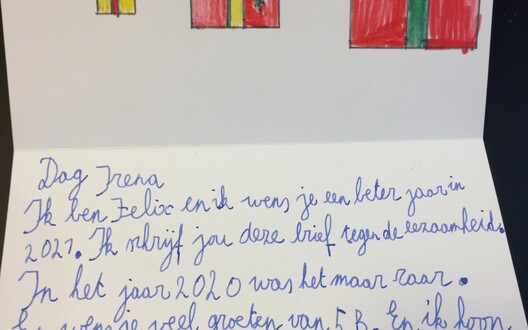 Dag Irena
Ik ben Felix en ik wens je een beter jaar in
2021. Ik schrijf jou deze brief tegen de eezaamheid.
In het jaar 2020 was het maar raar.
wens je veel groeten van F.B. En ik hoop